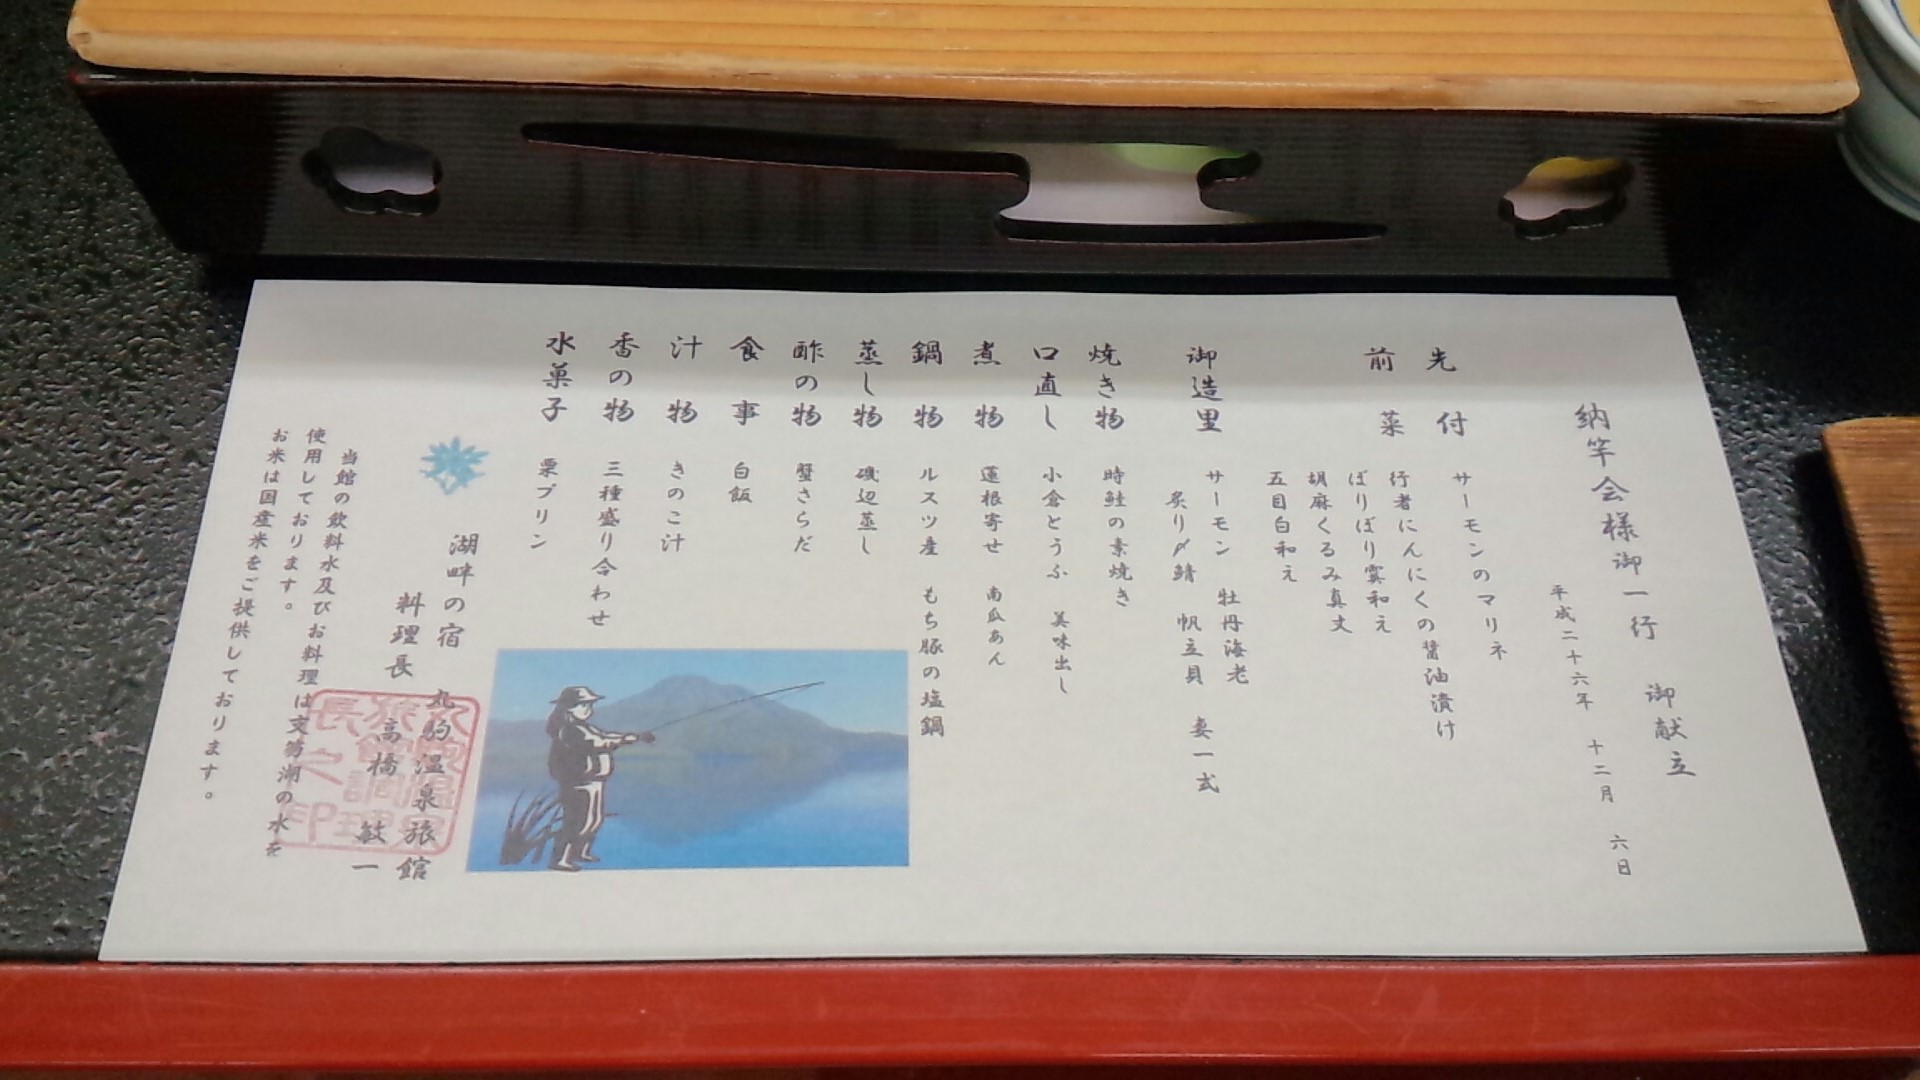 納竿会様御一行 御献立
平成二十六年 十二月 六日
先付 サーモンのマリネ
前菜 行者にんにくの醤油漬け
ぱりぱり雲和え
胡麻くるみ真丈
五目白和え
御造里 サーモン 牡丹海老
炙り〆鯖 帆立貝 妻一式
焼き物 時鮭の素焼き
口直し 小倉とうふ 美味出し
煮物 蓮根寄せ 南瓜あん
鍋物 ルスツ産 もち豚の塩鍋
蒸し物 磯辺蒸し
酢の物 蟹さらだ
食事 白飯
汁物 きのこ汁
香の物 三種盛り合わせ
水菓子 栗プリン
湖畔の宿 丸駒温泉旅館
料理長 高橋 敏一
当館の飲料水及びお料理は支笏湖の水を
使用しております。
お米は国産米をご提供しております。